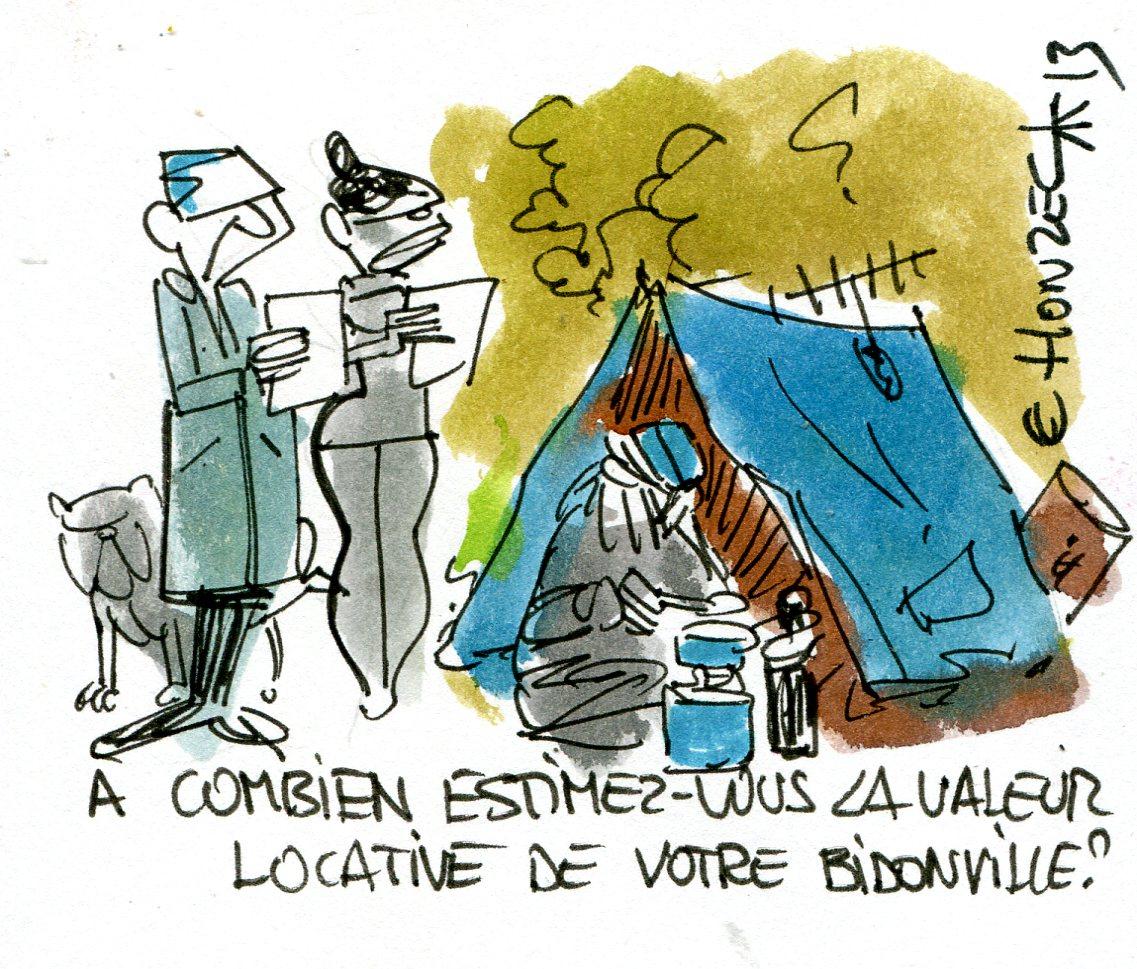 A COMBIEN ESTIMEZ-VOUS LA VALEUR
LOCATIVE DE VOTRE BIDONVILLE?
€ HONZEC* 13